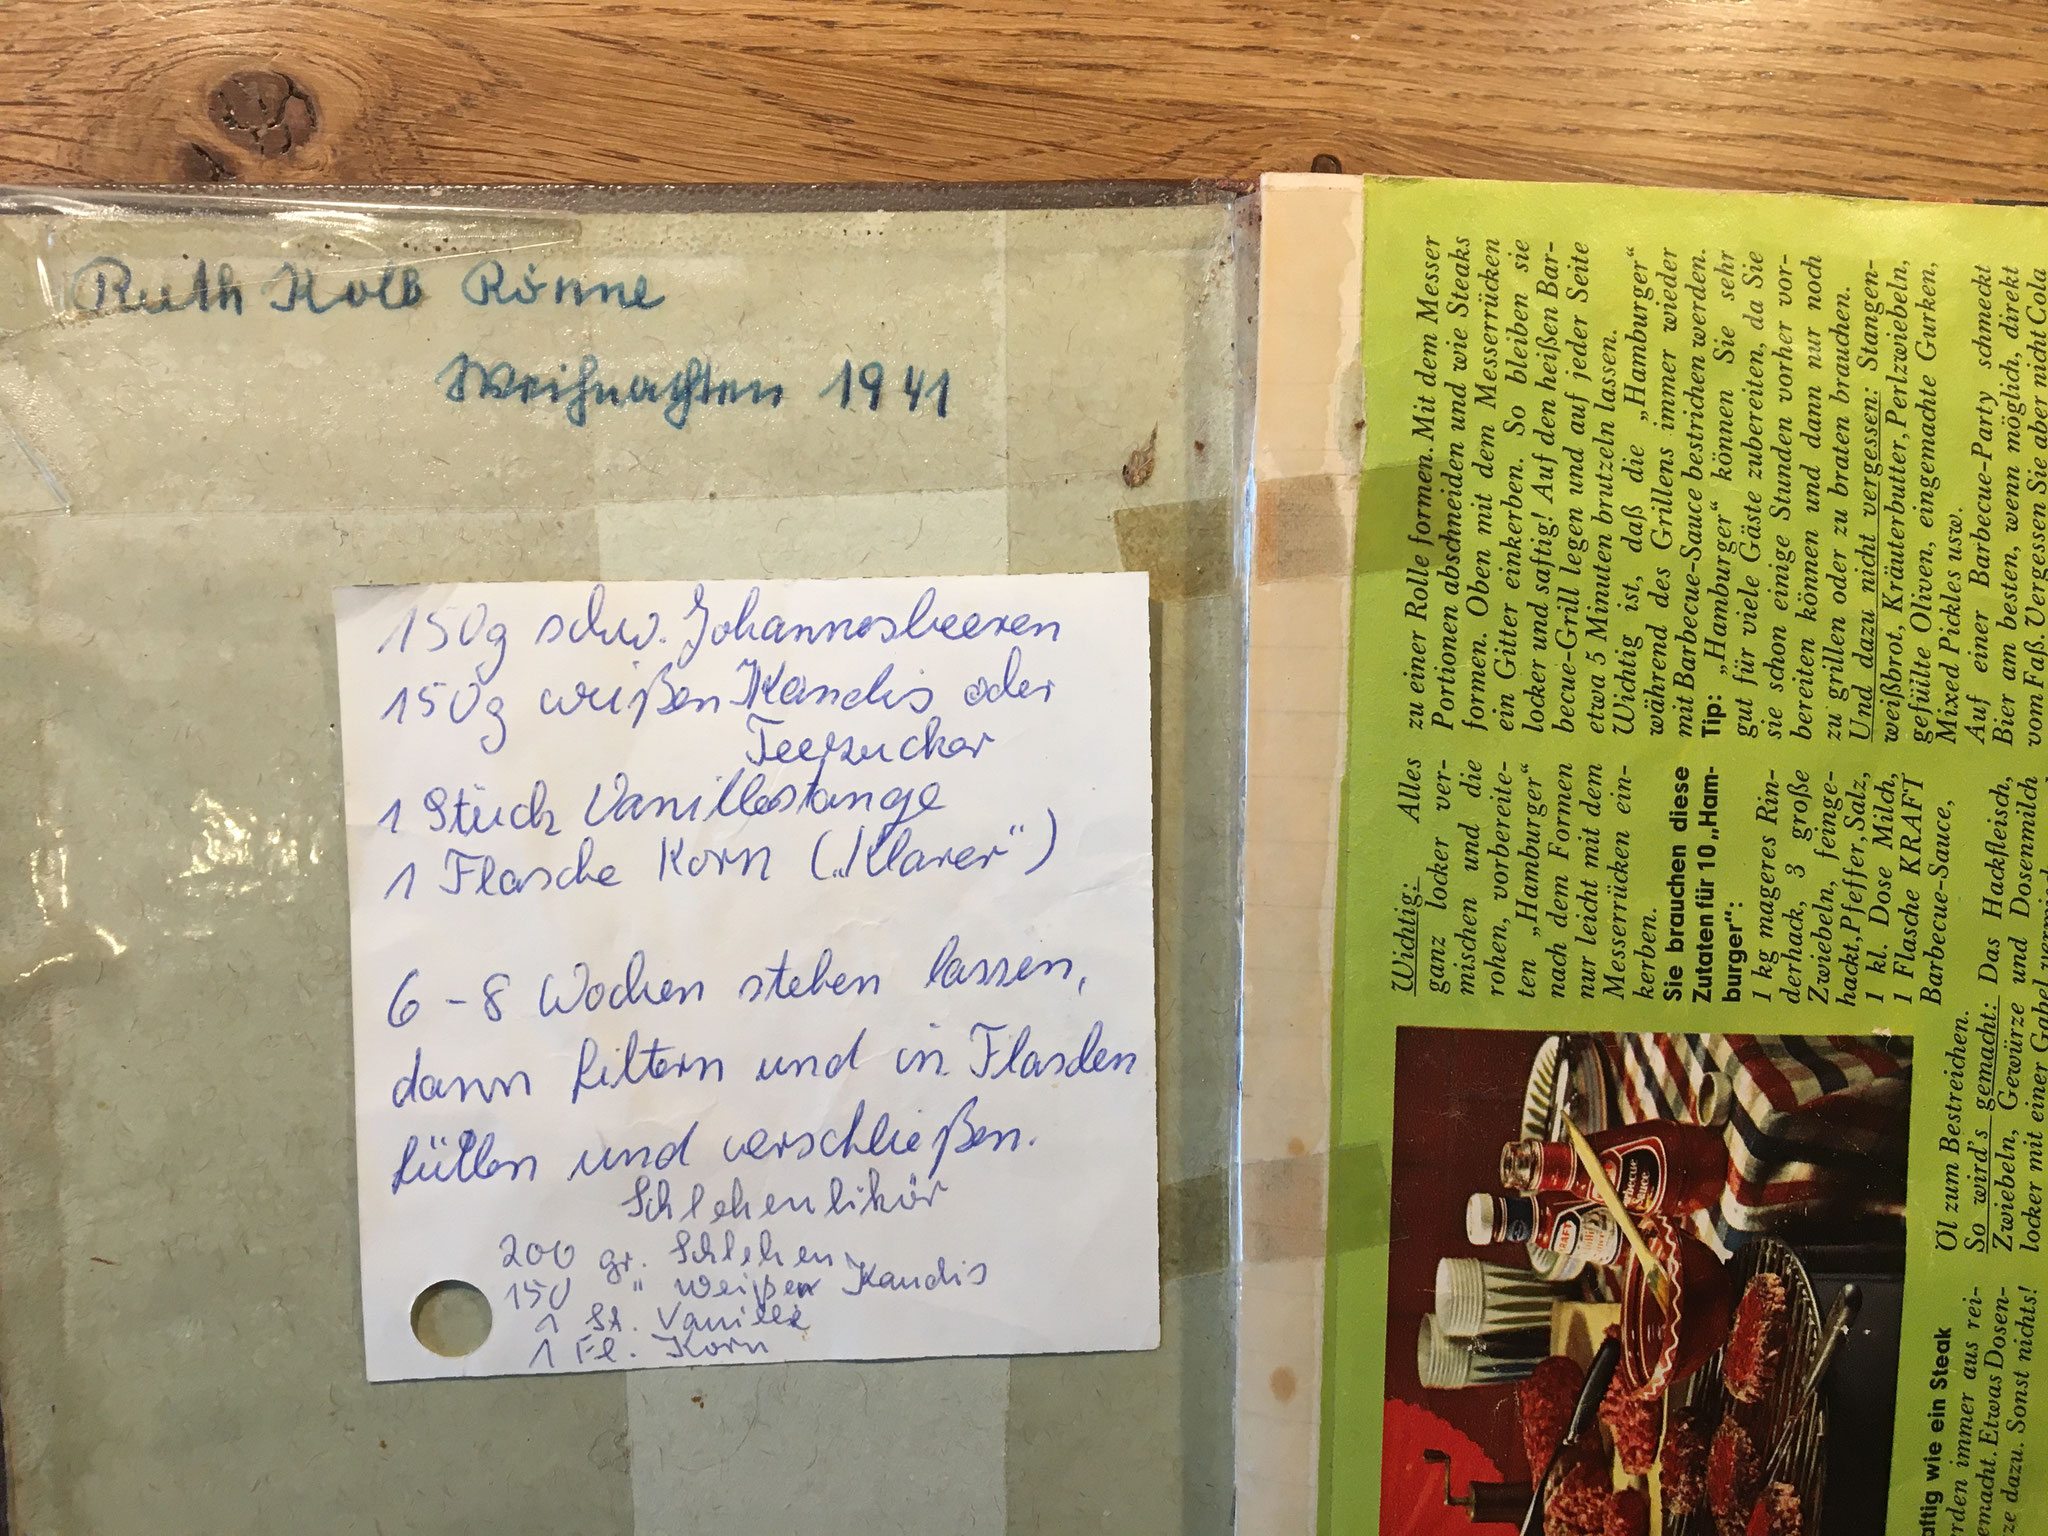 Ruth Kolb Rönne
Weihnachten 1941
150g schw. Johannesbeeren
150g weißen Kandis oder
Teezucker
1 Stück Vanillestange
1 Flasche Korn („Klarer“)
6 - 8 Wochen stehen lassen,
dann filtern und in Flaschen
füllen und verschließen.
Schlehenlikör
200 gr. Schlehen
150 " weißer Kandis
1 St. Vanille
1 Fl. Korn
aftig wie ein Steak
rden immer aus rei-
emacht. Etwas Dosen-
ze dazu. Sonst nichts!
Wichtig: Alles
ganz locker ver-
mischen und die
rohen, vorbereite-
ten „Hamburger“
nach dem Formen
nur leicht mit dem
Messerrücken ein-
kerben.
Sie brauchen diese
Zutaten für 10 „Ham-
burger“:
1 kg mageres Rin-
derhack, 3 große
Zwiebeln, feinge-
hackt, Pfeffer, Salz,
1 kl. Dose Milch,
1 Flasche KRAFT
Barbecue-Sauce,
Öl zum Bestreichen.
So wird's gemacht: Das Hackfleisch,
Zwiebeln, Gewürze und Dosenmilch
locker mit einer Gabel
zu einer Rolle formen. Mit dem Messer
Portionen abschneiden und wie Steaks
formen. Oben mit dem Messerrücken
ein Gitter einkerben. So bleiben sie
locker und saftig! Auf den heißen Bar-
becue-Grill legen und auf jeder Seite
etwa 5 Minuten brutzeln lassen.
Wichtig ist, daß die „Hamburger“
während des Grillens immer wieder
mit Barbecue-Sauce bestrichen werden.
Tip: „Hamburger“ können Sie sehr
gut für viele Gäste zubereiten, da Sie
sie schon einige Stunden vorher vor-
bereiten können und dann nur noch
zu grillen oder zu braten brauchen.
Und dazu nicht vergessen: Stangen-
weißbrot, Kräuterbutter, Perlzwiebeln,
gefüllte Oliven, eingemachte Gurken,
Mixed Pickles usw.
Auf einer Barbecue-Party schmeckt
Bier am besten, wenn möglich, direkt
vom Faß. Vergessen Sie aber nicht Cola
KRAFT